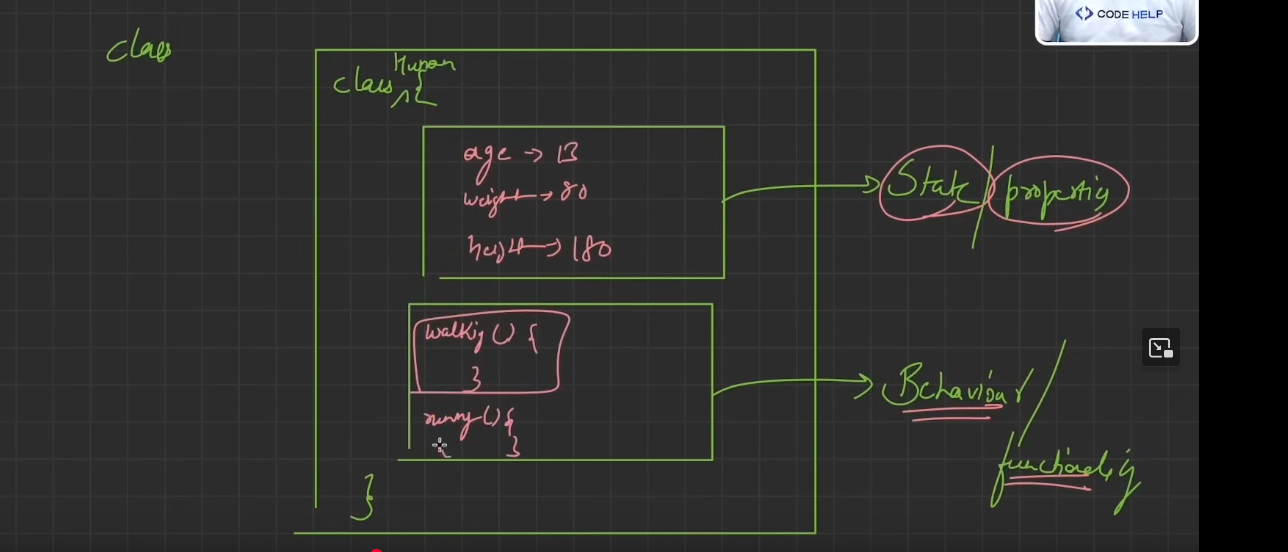 CODE HELP
class
class Human {
age → 13
weight → 80
height → 180
State / properties
walking () {
}
running () {
}
Behaviour /
functionality
}